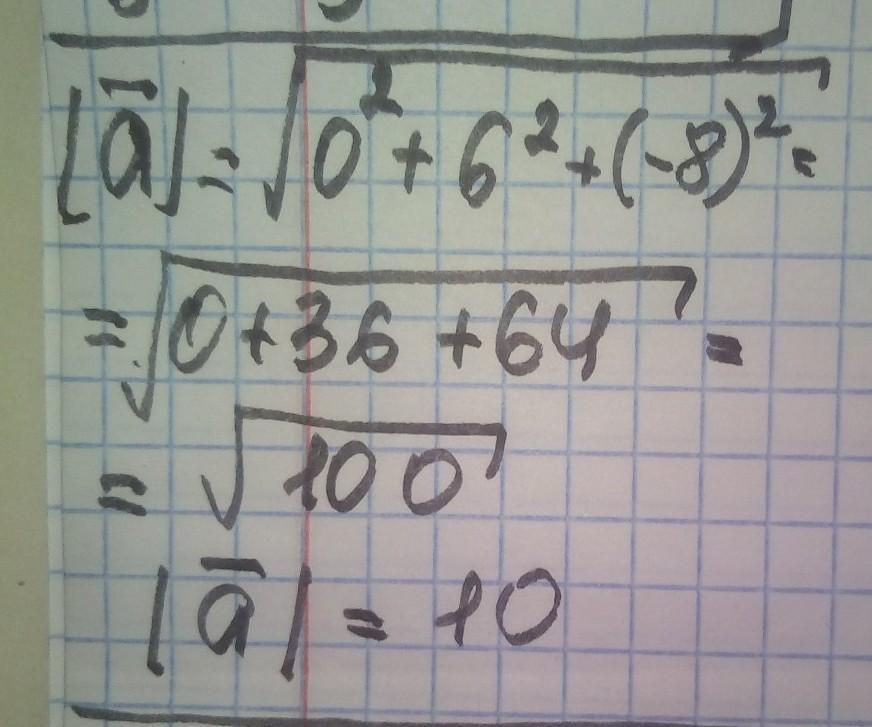 |a̅| = √0² + 6² + (-8)² =
= √0 + 36 + 64 =
= √100
|a̅| = 10